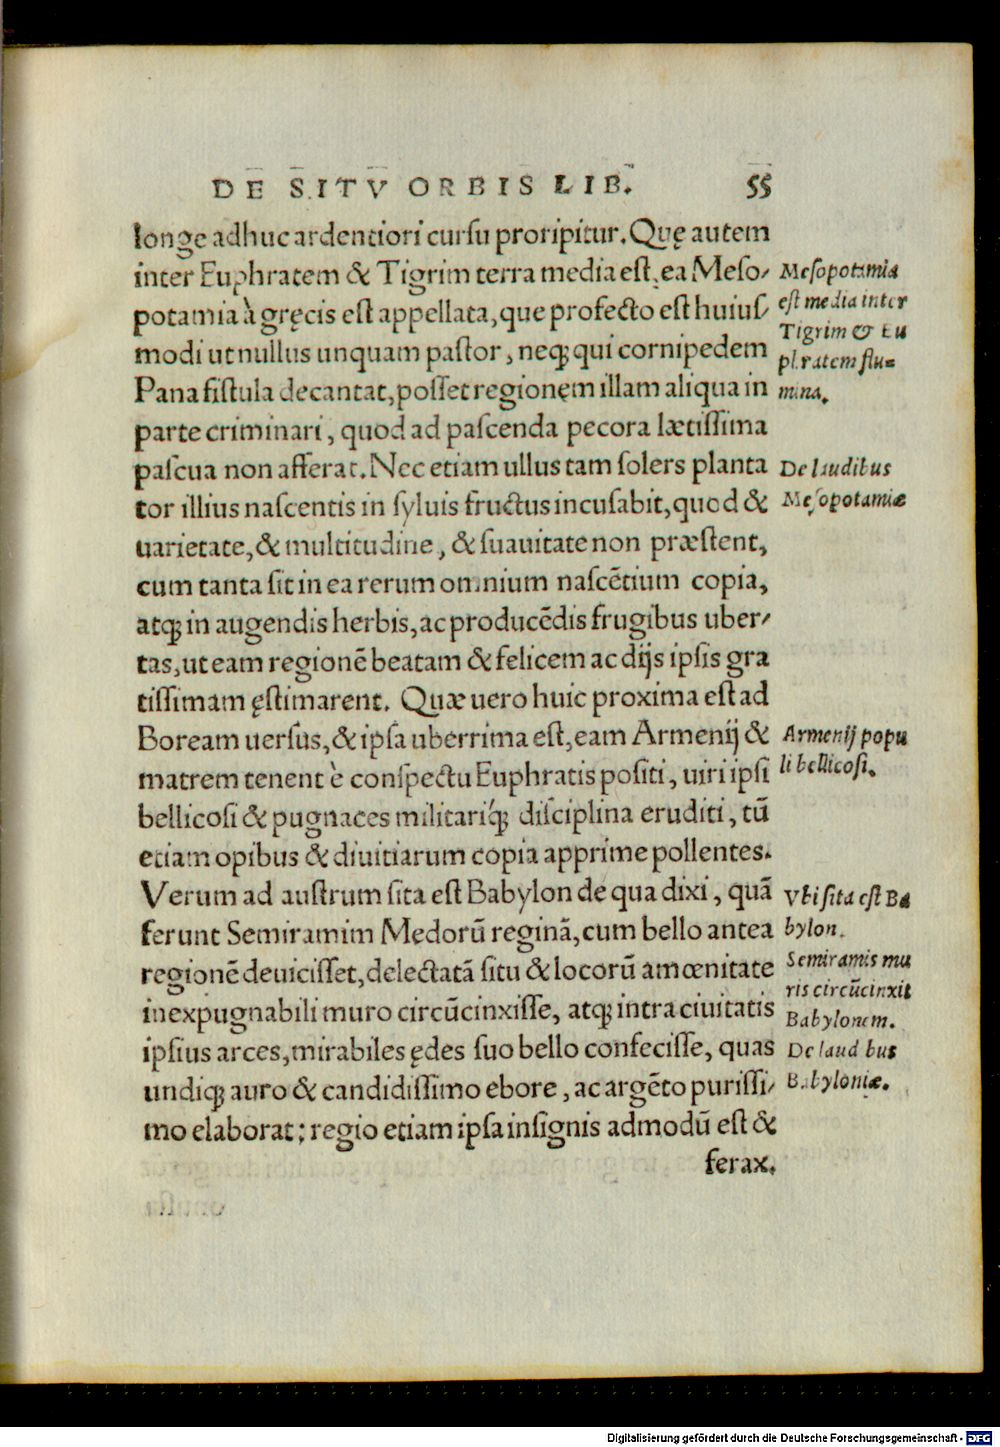 DE SITV ORBIS LIB. 55
longe adhuc ardentiori cursu proripitur. Quę autem
inter Euphratem & Tigrim terra media est, ea Meso/
potamia à gręcis est appellata, que profecto est huius/
modi ut nullus unquam pastor, neq; qui cornipedem
Pana fistula decantat, posset regionęm illam aliqua in
parte criminari, quod ad pascenda pecora lætissima
pascua non afferat. Nec etiam ullus tam solers planta
tor illius nascentis in syluis fructus incusabit, quod &
uarietate, & multitudine, & suauitate non præstent,
cum tanta sit in ea rerum omnium nascētium copia,
atq; in augendis herbis, ac producēdis frugibus uber/
tas, ut eam regionē beatam & felicem ac dijs ipsis gra
tissimam ęstimarent. Quæ uero huic proxima est ad
Boream uersus, & ipsa uberrima est, eam Armenij &
matrem tenent è conspectu Euphratis positi, uiri ipsi
bellicosi & pugnaces militariq́; disciplina eruditi, tū
etiam opibus & diuitiarum copia apprime pollentes.
Verum ad austrum sita est Babylon de qua dixi, quā
ferunt Semiramim Medorū reginā, cum bello antea
regionē deuicisset, delectatā situ & locorū amœnitate
inexpugnabili muro circūcinxisse, atq; intra ciuitatis
ipsius arces, mirabiles ędes suo bello confecisse, quas
undiq; auro & candidissimo ebore, ac argēto purissi/
mo elaborat; regio etiam ipsa insignis admodū est &
ferax.
Mesopotamia
est media inter
Tigrim & Eu
phratem flu=
mina.
De laudibus
Mesopotamiæ
Armenij popu
li bellicosi.
Vbi sita est Ba
bylon.
Semiramis mu
ris circūcinxit
Babylonem.
De laudibus
Babyloniæ.
Digitalisierung gefördert durch die Deutsche Forschungsgemeinschaft - DFG